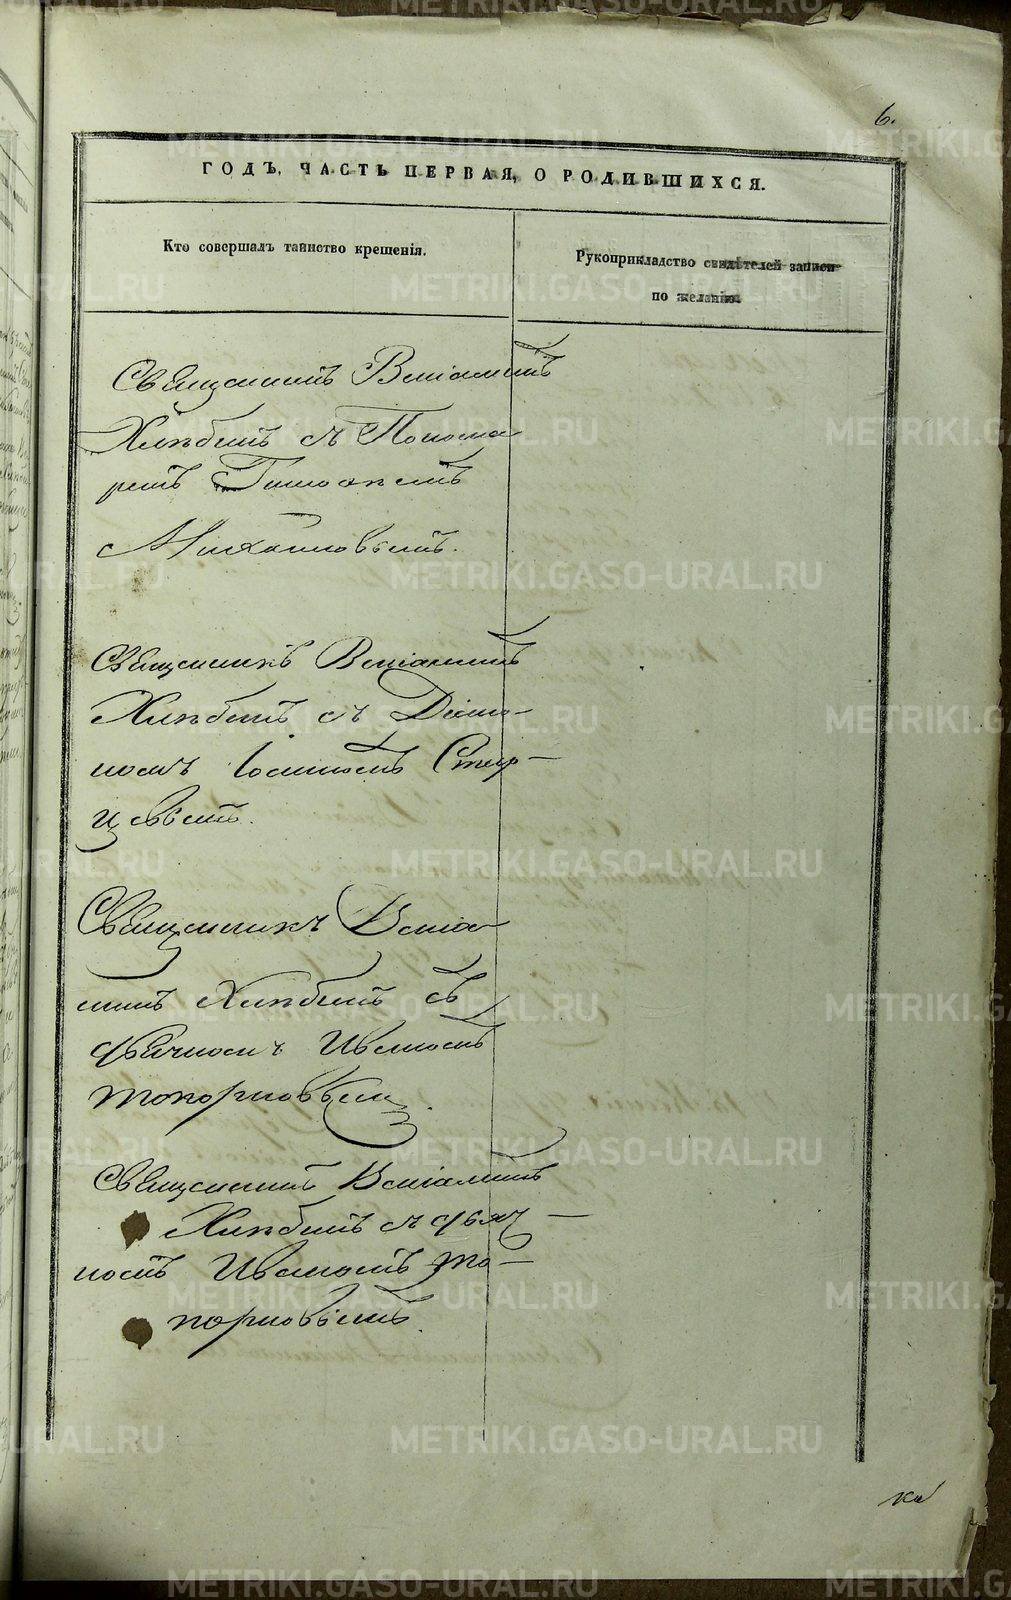 6.
ГОДЪ, ЧАСТЬ ПЕРВАЯ, О РОДИВШИХСЯ.
Кто совершалъ таинство крещенія.
Рукоприкладство свидѣтелей записи
по желанію.
Священникъ Веніаминъ
Хлѣбинъ съ Понома
ремъ Тимоѳеемъ
Михайловымъ.
Священникъ Веніаминъ
Хлѣбинъ съ Діако-
номъ Іоанномъ
Священникъ Веніа
минъ Хлѣбинъ съ
дьячкомъ Иваномъ
Топорковымъ.
Священникъ Веніаминъ
Хлѣбинъ съ дьяч-
комъ Иваномъ То-
порковымъ.
METRIKI.GASO-URAL.RU